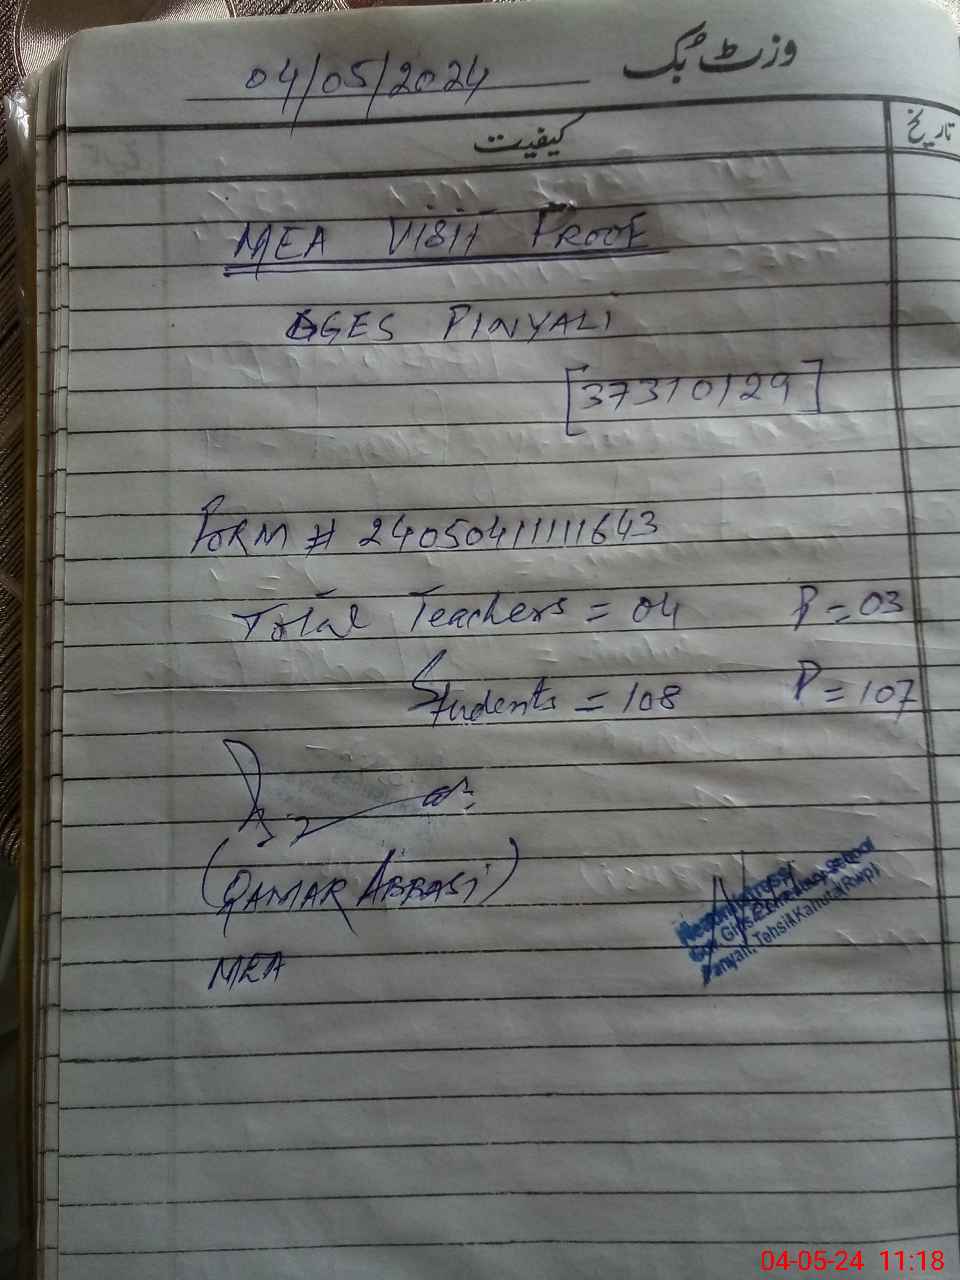 وزٹ بک
04/05/2024
تاریخ
کیفیت
MEA VISIT PROOF
GGES PINYALI
[37310129]
FORM # 24050411111643
Total Teachers = 04 P = 03
Students = 108 P = 107
(QAMAR ABBASI)
MEA
Headmistress
Govt. Girls Elementary School
Panyali, Tehsil Kahuta (Rwp)
04-05-24 11:18